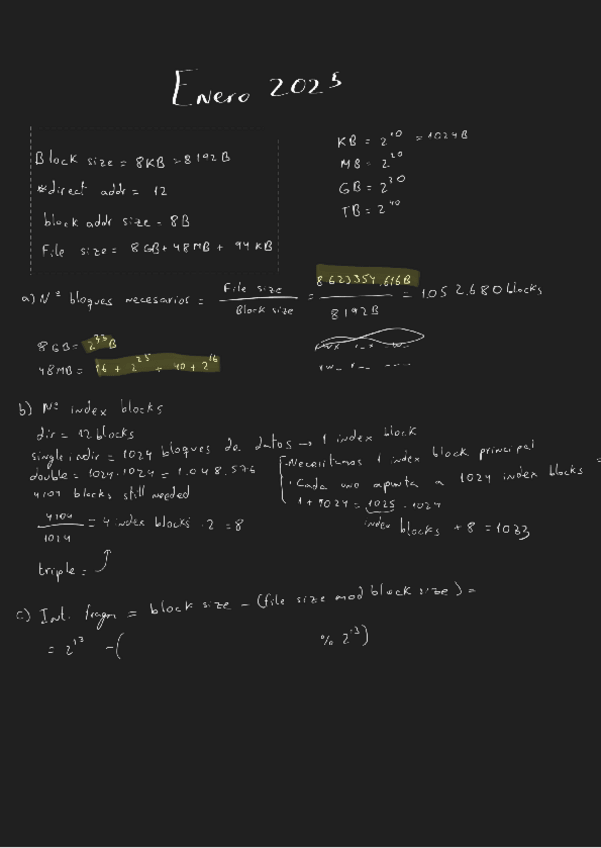 Enero 2025
Block size = 8KB = 8192B
#direct addr = 12
block addr size = 8B
File size = 8GB + 48MB + 94KB
KB = 2^10 = 1024B
MB = 2^20
GB = 2^30
TB = 2^40
a) Nº bloques necesarios = File size / Block size = 8.623354.616B / 8192B = 1.052.680 blocks
8GB = 2^33 B
48MB =
b) Nº index blocks
dir = 12 blocks
single indir = 1024 bloques de datos → 1 index block
double = 1024·1024 = 1.048.576
4104 blocks still needed
4104 / 1024 = 4 index blocks · 2 = 8
triple =
- Necesitamos 1 index block principal
· Cada uno apunta a 1024 index blocks =
1 + 1024 = 1025 · 1024
index blocks + 8 = 1033
c) Int. fragm = block size - (file size mod block size) =
= 2^13 - ( % 2^-3)